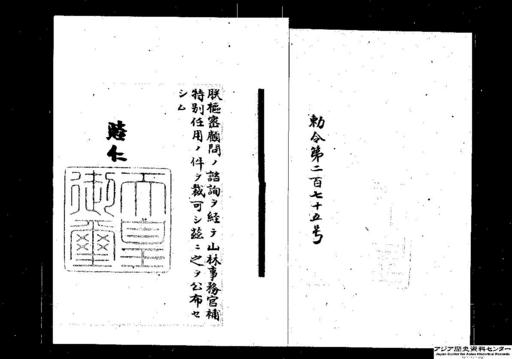 勅令第二百七十五号
朕枢密顧問ノ諮詢ヲ経テ山林事務官補
特別任用ノ件ヲ裁可シ茲ニ之ヲ公布セ
シム
睦仁
天皇
御璽
アジア歴史資料センター
Japan Center for Asian Historical Records